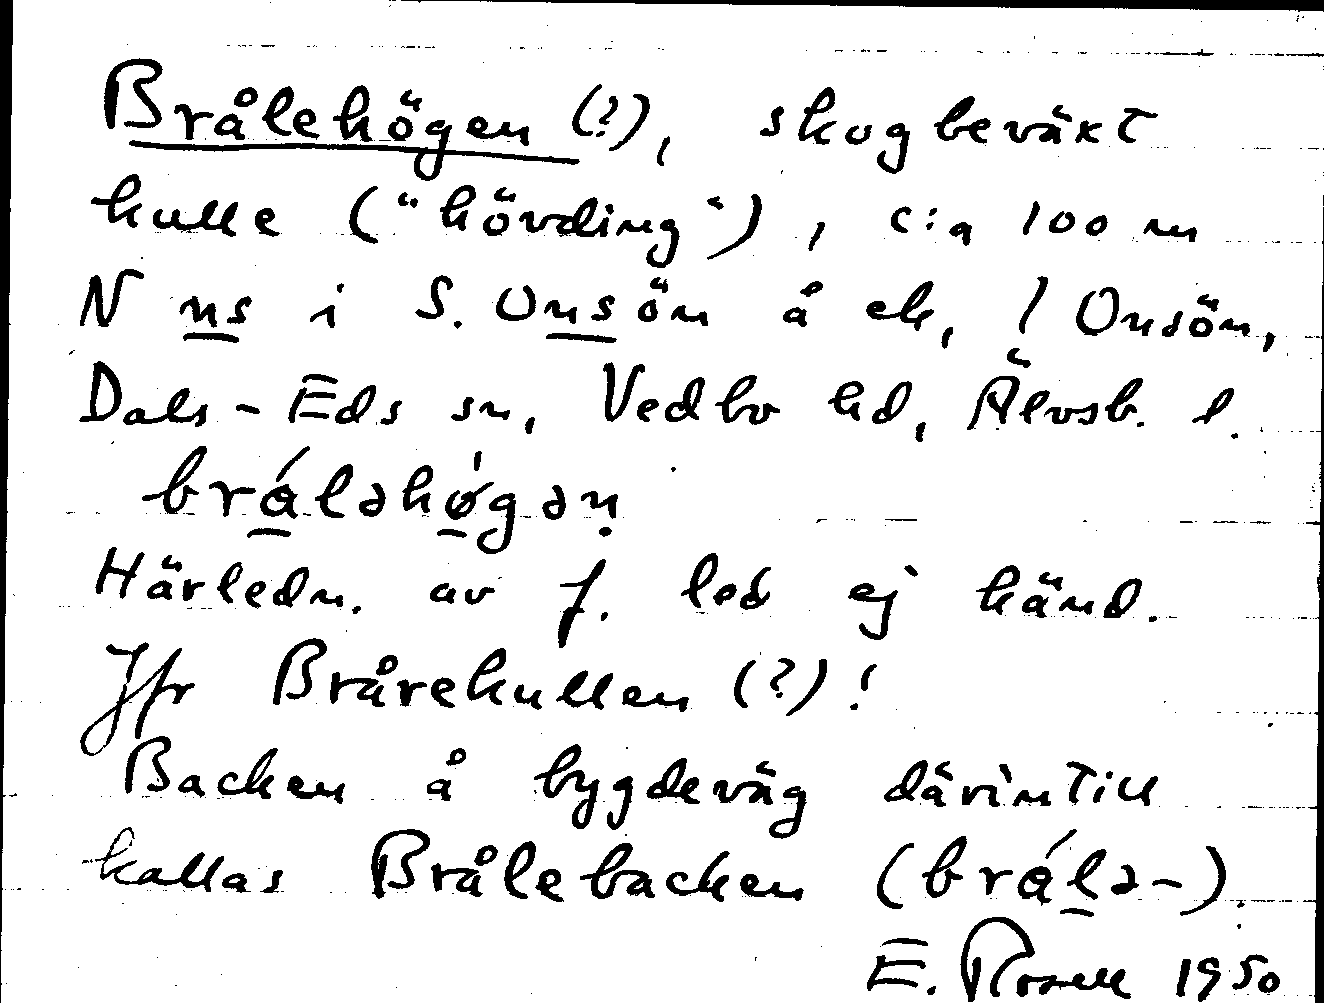 Brålehögen (?), skogbeväxt
kulle ("hövding"), c:a 100 m
N ns i S. Onsön å ek, / Onsön,
Dals-Eds sn, Vedbo hd, Älvsb. l.
brálahǿgan
Härledn. av f. led ej känd.
Jfr Brårekullen (?)!
Backen å bygdeväg därintill
kallas Brålebacken (brálə-).
E. Rosell 1950